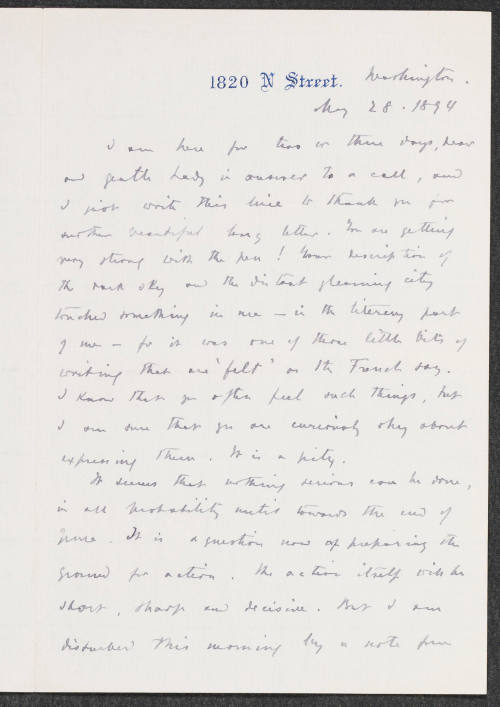 1820 N Street. Washington.
May 28. 1894
I am here for two or three days, dear
and gentle lady in answer to a call, and
I just write this line to thank you for
another beautiful long letter. You are getting
very strong with the pen! Your description of
the dark sky and the distant gleaming city
touched something in me – in the literary part
of me – for it was one of those little bits of
writing that are "felt" as the French say.
I know that you often feel such things, but
I am sure that you are curiously shy about
expressing them. It is a pity.
It seems that nothing serious can be done,
in all probability until towards the end of
June. It is a question now of preparing the
ground for action. The action itself will be
short, sharp and decisive. But I am
disturbed this morning by a note from